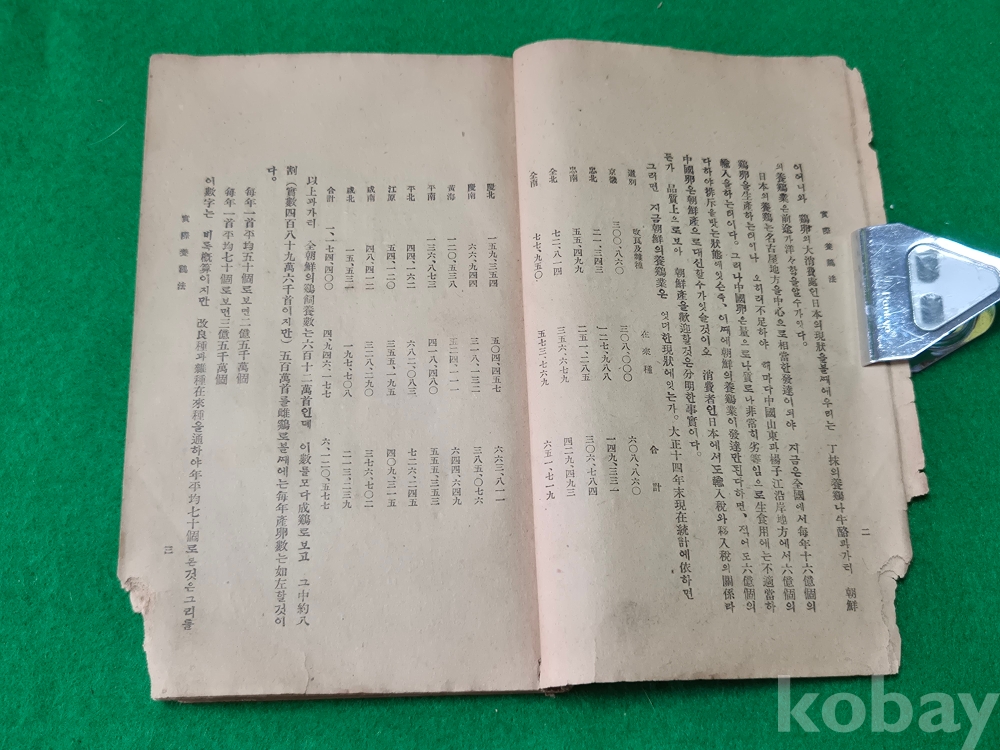 實際養鷄法
二
이어니와 鷄卵의大消費處인日本의現狀을볼째에우리는 丁抹의養鷄나牛酪과가티 朝鮮
의養鷄業은前途가洋々함을알수가잇다.
日本의養鷄는名古屋地方을中心으로相當한發達이되야 지금은全國에서每年十六億個의
鷄卵을生産하는터이나 오히려不足하야 해마다中國山東과揚子江沿岸地方에서六億個의
輸入을하는터이다. 그러나中國卵은量으로나質로나非常히劣等임으로生食用에는不適當하
다하야排斥을맛는狀態에잇슨즉, 이째에朝鮮의養鷄業이發達만된다하면, 적어도六億個의
中國卵은朝鮮産으로대신할수가잇슬것이오 消費者인日本에서도輸入稅와移入稅의關係라
든가 品質上으로보아 朝鮮産을歡迎할것은分明한事實이다.
그러면 지금朝鮮의養鷄業은 엇더한現狀에잇는가. 大正十四年末現在統計에依하면
道別 改良及雜種 在來種 合計
京畿 三〇〇、八六〇 三〇八、〇〇〇 六〇八、八六〇
忠北 二一、三四四 一二七、九八八 一四九、三三二
忠南 五五、四九九 二五一、二八五 三〇六、七八四
全北 七二、八一四 三五六、六七九 四二九、四九三
全南 七七、九五〇 五七三、七六九 六五一、七一九
慶北 一五九、三五四 五〇四、四五七 六六三、八一一
慶南 六六、九四四 三一八、一三二 三八五、〇七六
黃海 一二〇、五三八 五二四、一一一 六四四、六四九
平南 一三六、八七三 四一八、四八〇 五五五、三五三
平北 四四、一六二 六八二、〇八三 七二六、二四五
江原 五四、一二〇 三五五、一九五 四〇九、三一五
咸南 四八、四一二 三二八、二九〇 三七六、七〇二
咸北 一五、五三一 一九七、七〇八 二一三、二三九
合計 一、一七四、四〇〇 四、九四六、一七七 六、一二〇、五七七
以上과가티 全朝鮮의鷄飼養數는六百十二萬首인데 이數를모다成鷄로보고 그中約八
割(實數四百八十九萬六千首이지만) 五百萬首를雌鷄로볼째에는每年産卵數는如左할것이
다。
每年一首平均五十個로보면二億五千萬個
每年一首平均七十個로보면三億五千萬個
이數字는 비록槪算이지만 改良種과雜種在來種을通하야年平均七十個로본것은그리틀
實際養鷄法
三
kobay